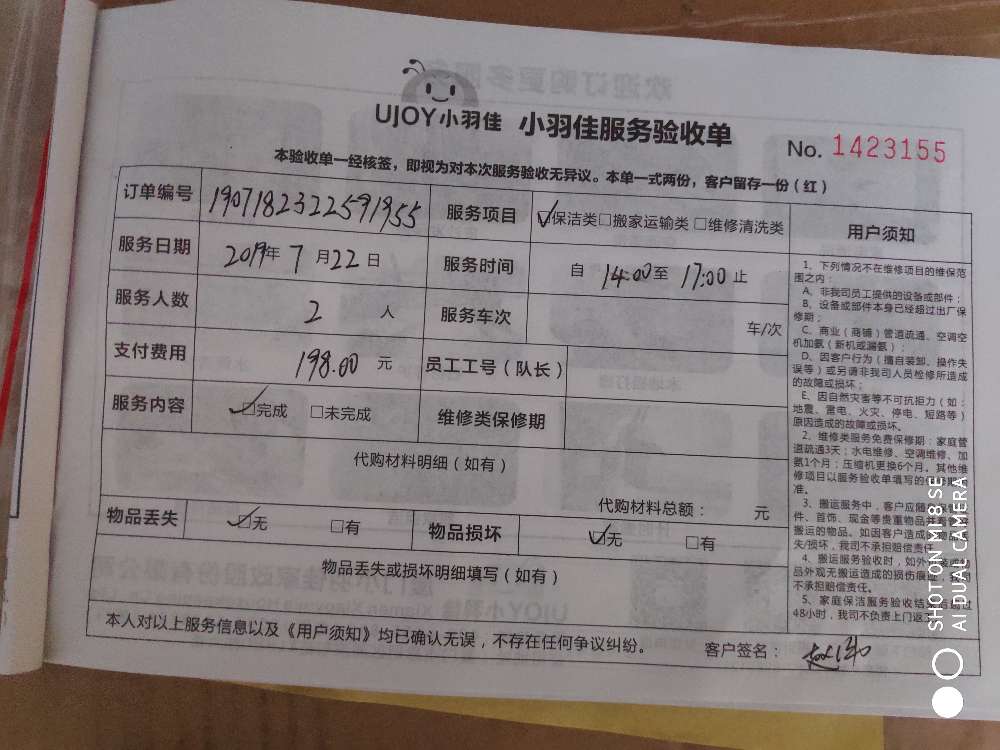 UJOY小羽佳 小羽佳服务验收单
No. 1423155
本验收单一经核签，即视为对本次服务验收无异议。本单一式两份，客户留存一份（红）
订单编号 1907182322591955 服务项目 ☑保洁类□搬家运输类 □维修清洗类
服务日期 2019年 7 月 22 日 服务时间 自 14:00 至 17:00 止
服务人数 2 人 服务车次 车/次
支付费用 198.00 元 员工工号（队长）
服务内容 ☑完成 □未完成 维修类保修期
代购材料明细（如有）
代购材料总额： 元
物品丢失 ☑无 □有 物品损坏 ☑无 □有
物品丢失或损坏明细填写（如有）
用户须知
1、下列情况不在维修项目的维保范
围之内：
A、非我司员工提供的设备或部件；
B、设备或部件本身已经超过出厂保
修期；
C、商业（商铺）管道疏通、空调空
机加氨（新机或漏氨）；
D、因客户行为（擅自装卸、操作失
误等）或另请非我司人员检修所造成
的故障或损坏；
E、因自然灾害等不可抗拒力（如：
地震、雷电、火灾、停电、短路等）
原因造成的故障或损坏。
2、维修类服务免费保修期：家庭管
道疏通3天；水电维修、空调维修、加
氨1个月；压缩机更换6个月。其他维
修项目以服务验收单填写的
准。
3、搬运服务中，客户应随
件、首饰、现金等贵重物品并
搬运的物品。如因客户造成
失/损坏，我司不承担赔偿责任
4、搬运服务验收时，如外
品外观无搬运造成的损伤痕
不承担赔偿责任。
5、家庭保洁服务验收结 超过
48小时，我司不负责上门返
本人对以上服务信息以及《用户须知》均已确认无误，不存在任何争议纠纷。 客户签名：
SHOT ON MI 8 SE
AI DUAL CAMERA